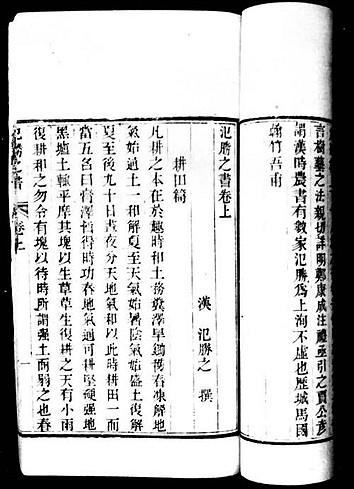 言樹藝之法親切詳明鄭康成注禮亟引之賈公彥
謂漢時農書有數家氾勝為上洵不虛也歷城馬國
翰竹吾甫
氾勝之書卷上
漢 氾勝之 撰
耕田篇
凡耕之本在於趣時和土務糞澤早鋤穫春凍解地
氣始通土一和解夏至天氣始暑陰氣始盛土復解
夏至後九十日晝夜分天地氣和以此時耕田一而
當五名曰膏澤皆得時功春地氣通可耕堅硬强地
黑壚土輒平摩其塊以生草草生復耕之天有小雨
復耕和之勿令有塊以待時所謂强土而弱之也春
氾勝之書 卷上 一